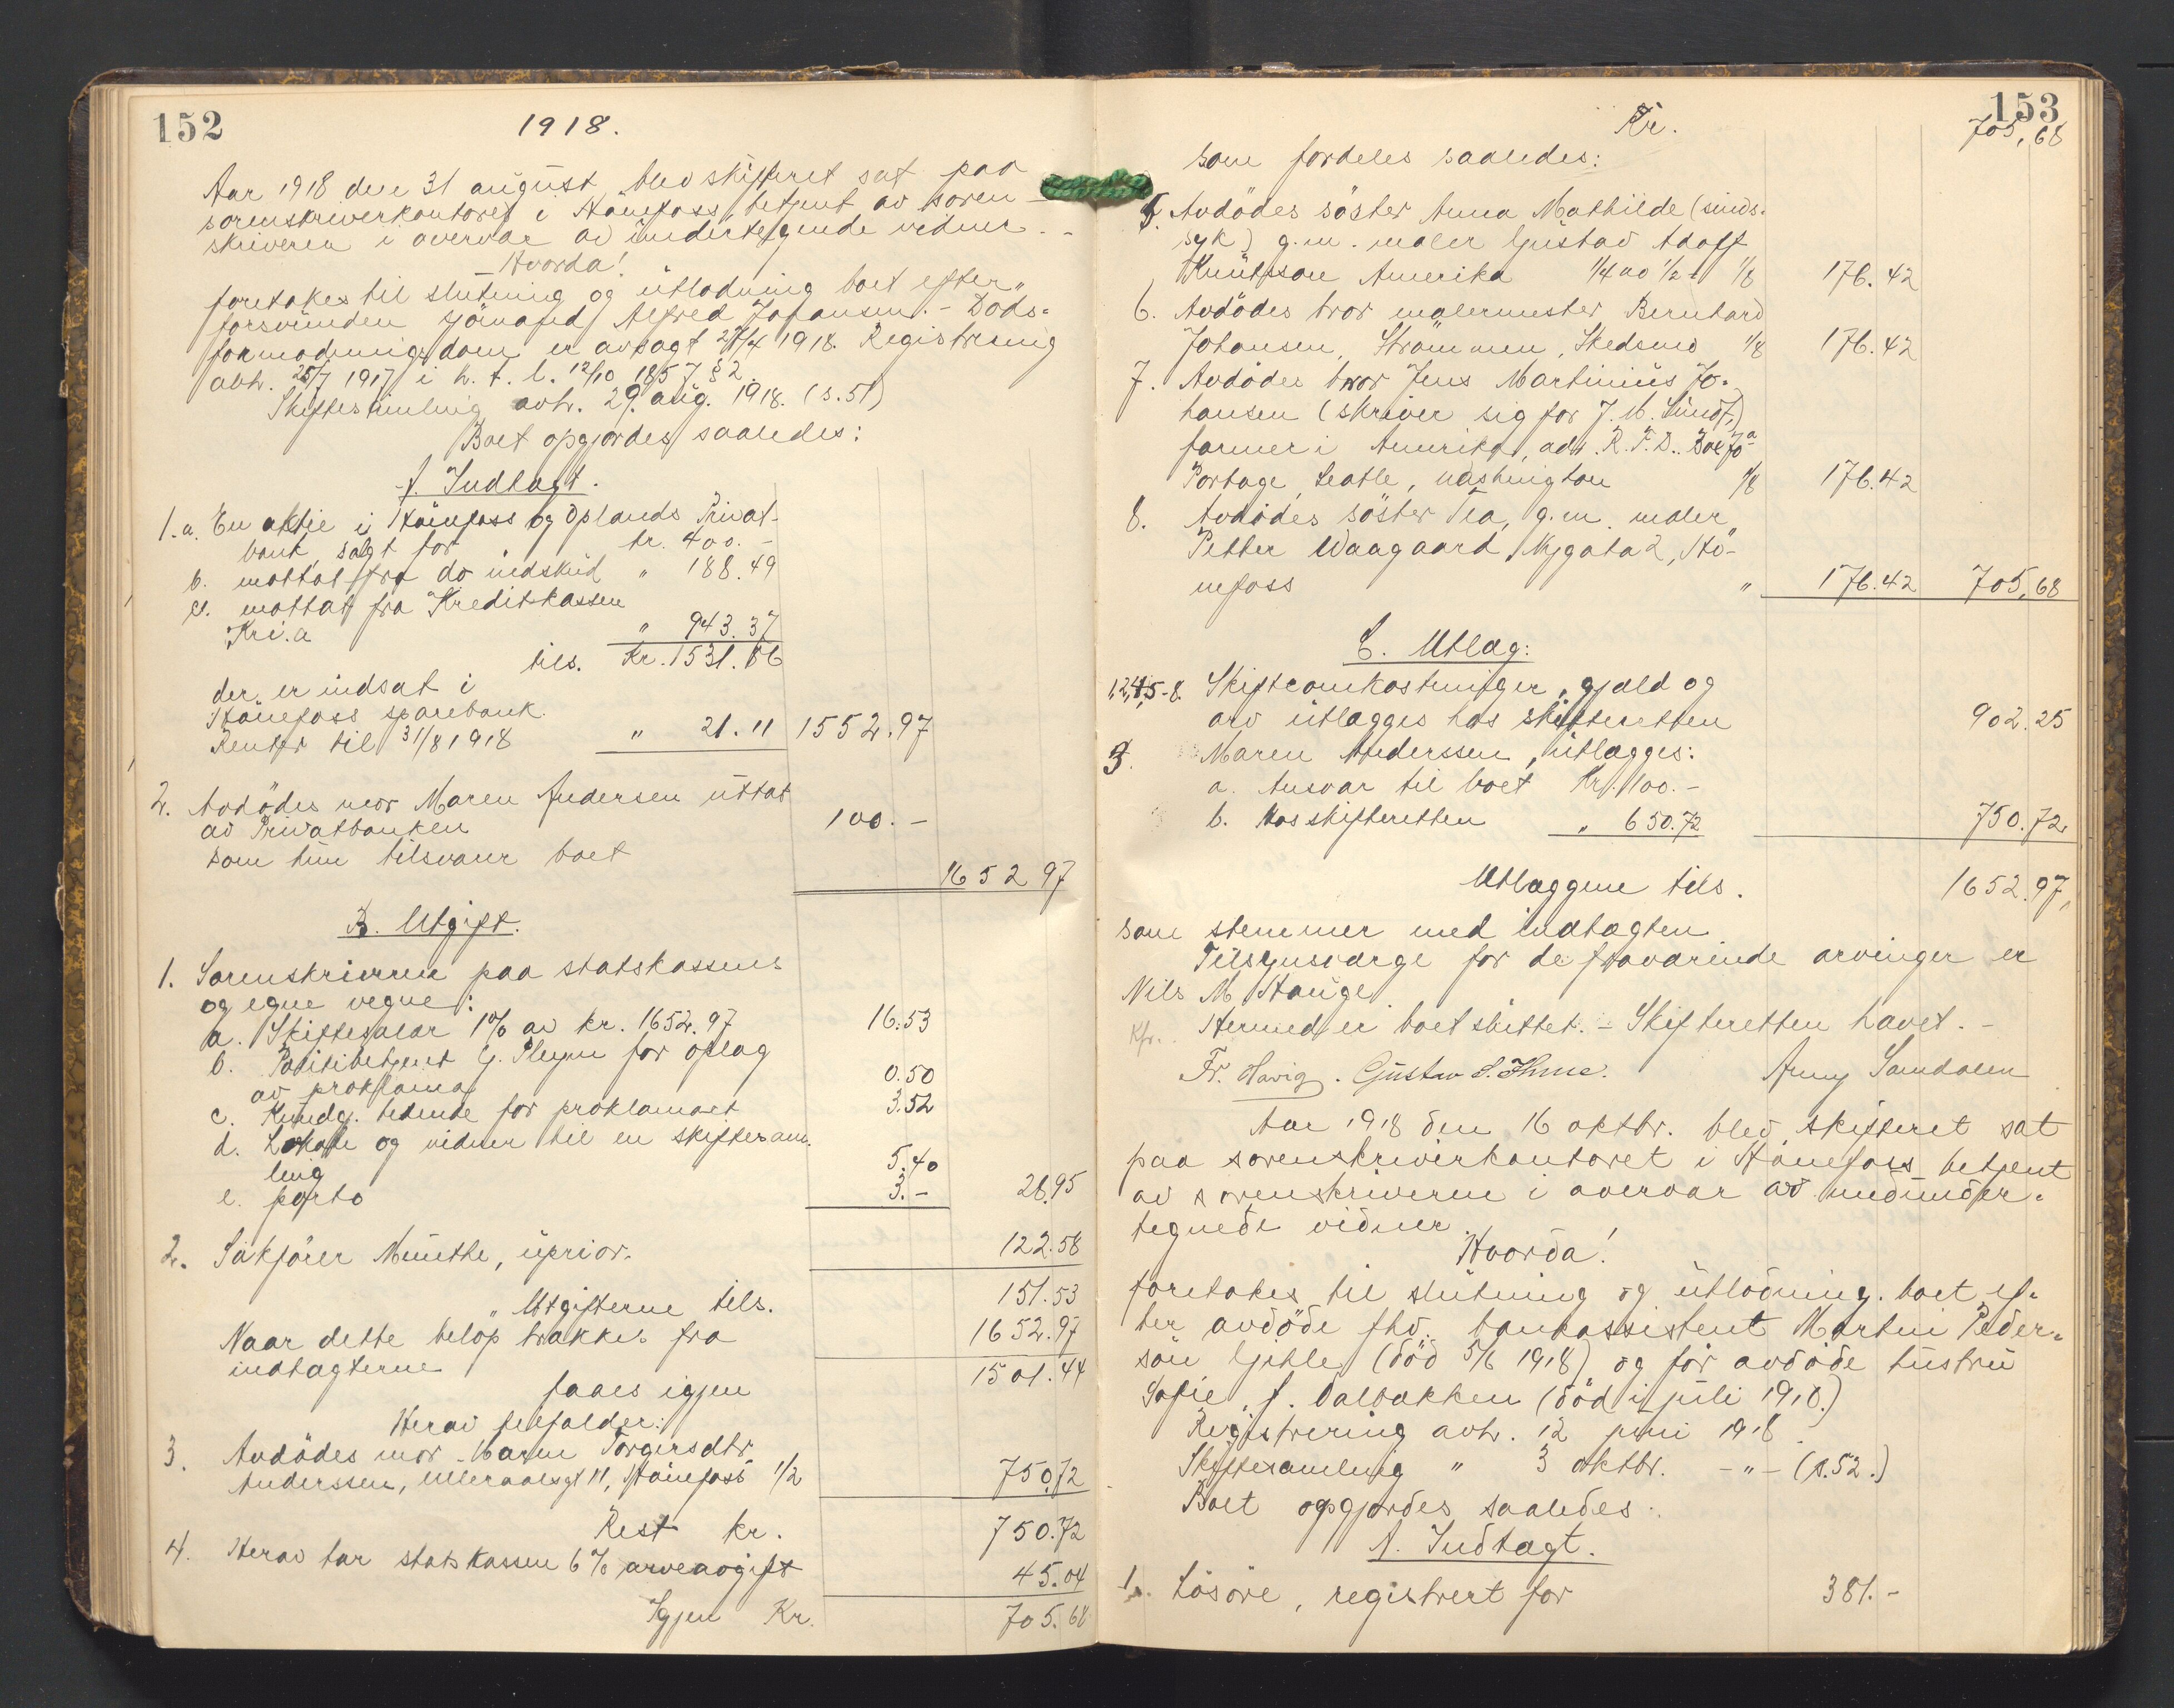 152
1918.
Aar 1918 den 31 august blev skifteret sat paa
sorenskriverkontoret i Hönefoss, betjent av soren-
skriveren i overvær av undertegnede vidner. -
- Hvorda!
foretokes til slutning og utlodning boet efter
forsvunden sjömand Alfred Johansen. - Döds-
formodningsdom er avsagt 27/4 1918. Registrering
avh. 25/7 1917 i h. t. l. 12/10 1857 § 2.
Skiftesamling avh. 29. aug. 1918. (s. 51)
Boet opgjordes saaledes:
A. Indtægt.
1. a. En aktie i Hönefoss og Oplands Privat-
bank, solgt for kr. 400. -
b. mottat fra do indskud " 188.49
c. mottat fra Kreditkassen
Kri.a " 943.37
tils. Kr. 1531.86
der er indsat i
Hönefoss sparebank.
Renter til 31/8 1918 " 21.11 1552.97
2. Avdödes mor Maren Andersen uttat
av Privatbanken 100. -
som hun tilsvarer boet
1652 97
B. Utgift.
1. Sorenskriveren paa statskassens
og egne vegne:
a. Skiftesalær 1% av kr. 1652.97 16.53
b. Politibetjent G. Pleym for opslag
av proklama 0.50
c. Kundg. tidende for proklamaet 3.52
d. Lokale og vidner til en skiftesam-
ling 5.40
e. porto 3. - 28.95
2. Sakförer Münthe, uprior. 122.58
" Utgifterne tils. 151.53
Naar dette belöp trækkes fra 1652.97
indtægterne
faaes igjen 1501.44
Herav tilfalder:
3. Avdödes mor Maren Torgersdtr.
Anderssen, Ulleraalsgt 11, Hönefoss 1/2 750.72
Rest kr. 750.72
4. Herav tar statskassen 6% arveavgift 45.04
Igjen Kr. 705.68
153
Kr. 705,68
som fordeles saaledes:
5. Avdödes söster Anna Mathilde (sinds-
syk) g.m. maler Gustav Adolf
Knutsson Amerika 1/4 av 1/2 = 1/8 176.42
6. Avdödes bror malermester Bernhard
Johansen, Strömmen, Skedsmo 1/8 176.42
7. Avdödes bror Jens Martinius Jo-
hansen (skriver sig for J. M. Lund),
farmer i Amerika, adr. R. F. D. Box 70 a
Portage, Seatle, Washington 1/8 176.42
8. Avdödes söster Tea, g.m. maler
Petter Waagaard, Nygata 2, Hö-
nefoss " 176.42 705,68
C. Utlæg:
1,2,4,5-8. Skifteomkostninger, gjæld og
arv utlægges hos skifteretten 902.25
3. Maren Anderssen, utlægges:
a. Ansvar til boet Kr. 100. -
b. Hos skifteretten " 650.72 750.72
Utlæggene tils. 1652.97,
som stemmer med indtægten
Tilsynsværge for de fraværende arvinger er
Nils M Hauge.
Kfr. Hermed er boet sluttet. - Skifteretten hævet. -
Fr. Havig. Gustav S. Amy Sandalen
Aar 1918 den 16 oktbr. blev skifteret sat
paa sorenskriverkontoret i Hönefoss betjent
av sorenskriveren i overvær av medunder-
tegnede vidner.
Hvorda!
foretokes til slutning og utlodning boet ef-
ter avdöde fhv. bankassistent Martin Peder-
sön Gihle (död 5/6 1918) og för avdöde hustru
Sofie, f. Dalbakken (död i juli 1910.)
Registrering avh. 12 juni 1918
Skiftesamling " 3 oktbr. - " - (s. 52.)
Boet opgjordes saaledes.
A. Indtægt.
1. Lösöre, registrert for 381. -